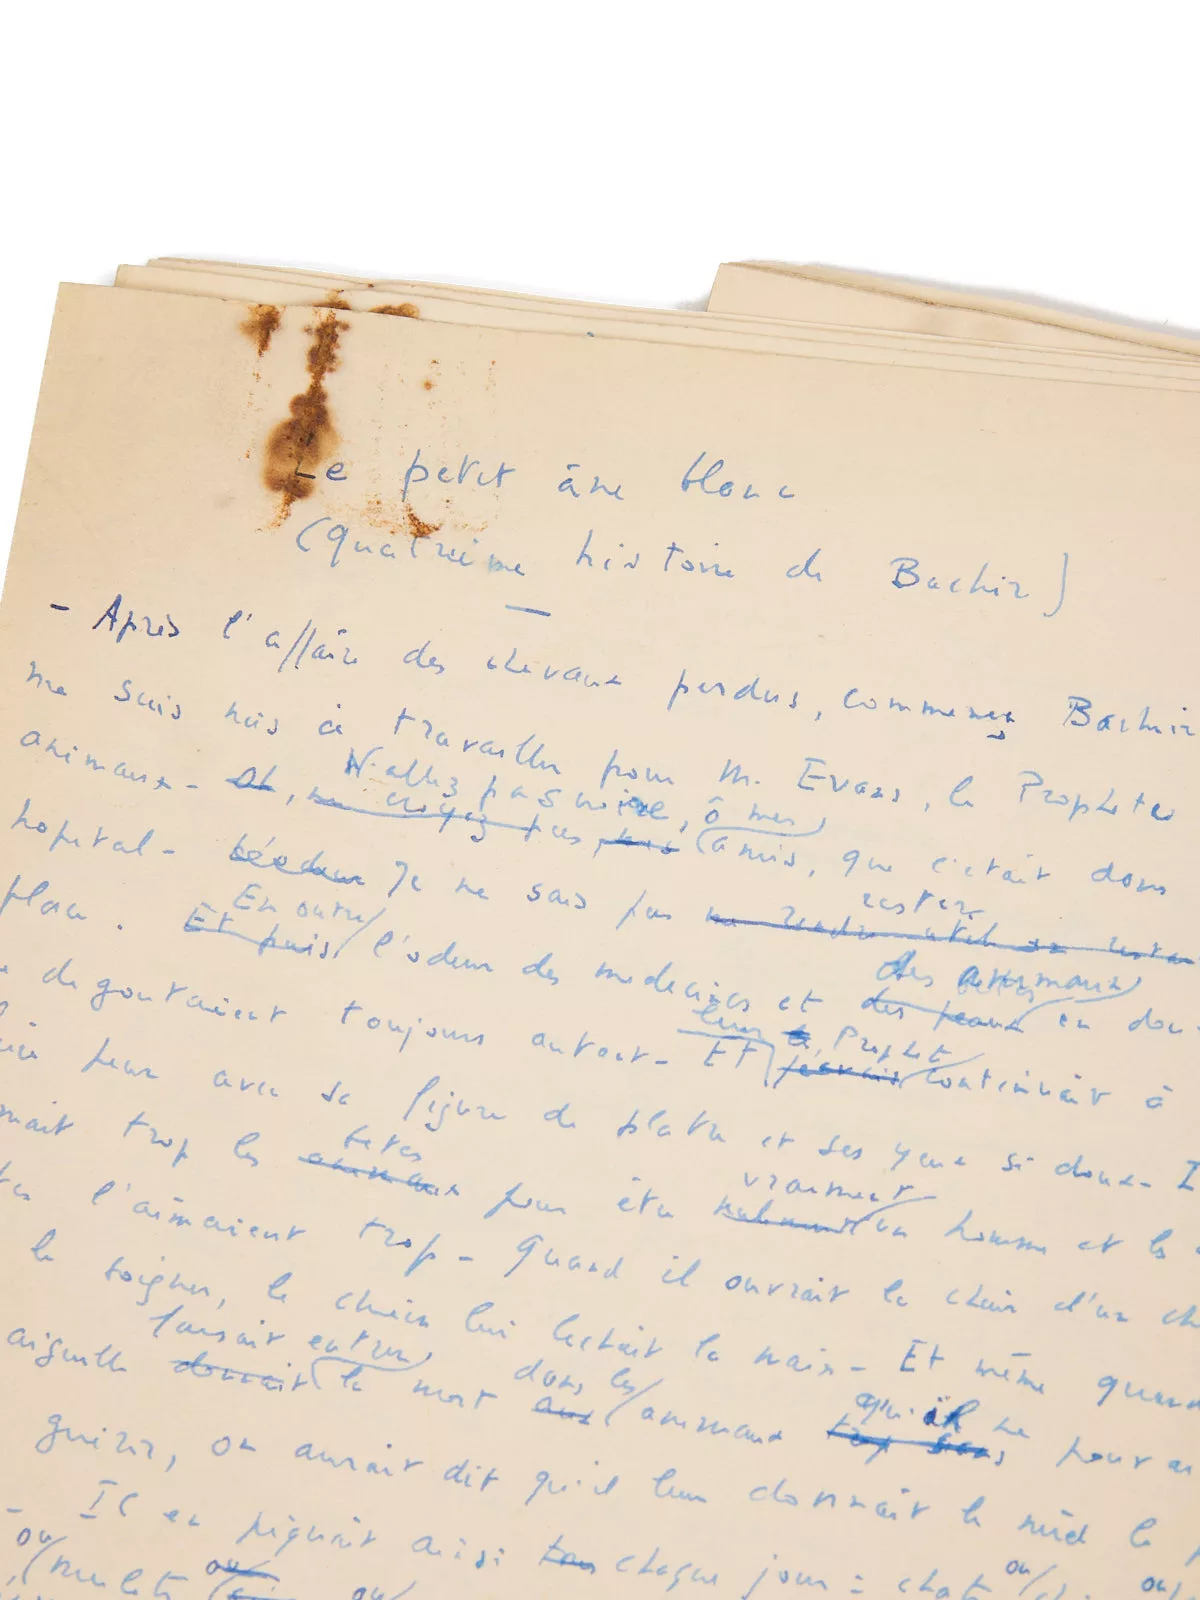 Le petit âne blanc
(Quatrième histoire de Bachir)
- Après l'affaire des chevaux perdus, commença Bachir
me suis mis à travailler pour M. Evans, le Prophète
N'allez pas croire, ô mes
animaux - croyez pas, amis, que c'était dans
hopital - Je ne sais pas
rester
place. Et puis l'odeur des medecines et des peaux en
En outre
des animaux
degoutaient toujours autour - Et continuait à
leur Prophete
peur avec sa figure de platre et ses yeux si doux - I
mait trop les animaux pour être un homme et les
betes
vraiment
l'aimaient trop - Quand il ouvrait la chair d'un
le soigner, le chien lui lechait la main - Et même quand
faisait entrer
dans les
aiguille donnait la mort aux animaux trop
qu'il ne pouvai
guérir, on aurait dit qu'il leur donnait le miel
- Il en piquait ainsi tous chaque jour = chats
ou ou ou ou ou
mulets